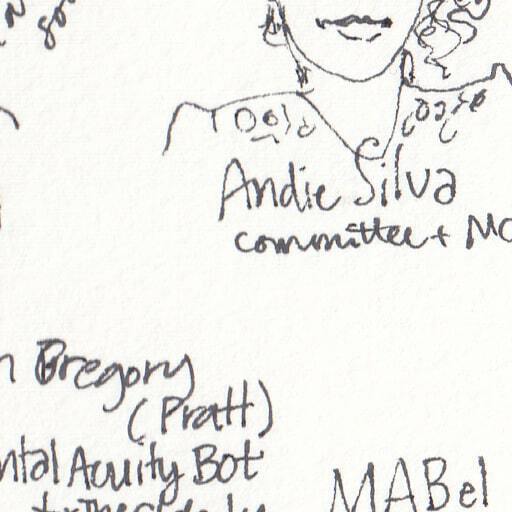 Andie Silva
committee + MC
Gregory
(Pratt)
ntal Acuity Bot
MABel